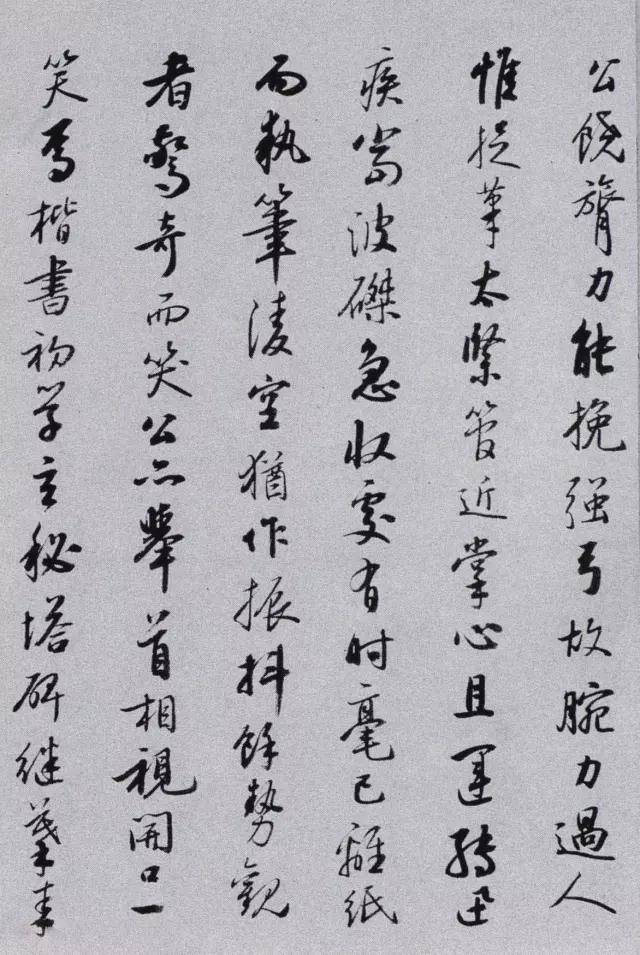 公饒膂力能挽强弓故腕力過人
惟捉筆太緊管近掌心且運轉迅
疾當波磔急收處有时毫已離纸
而執筆凌空猶作振抖餘勢觀
者驚奇而笑公亦舉首相視開口一
笑焉楷書初学玄秘塔碑继摹